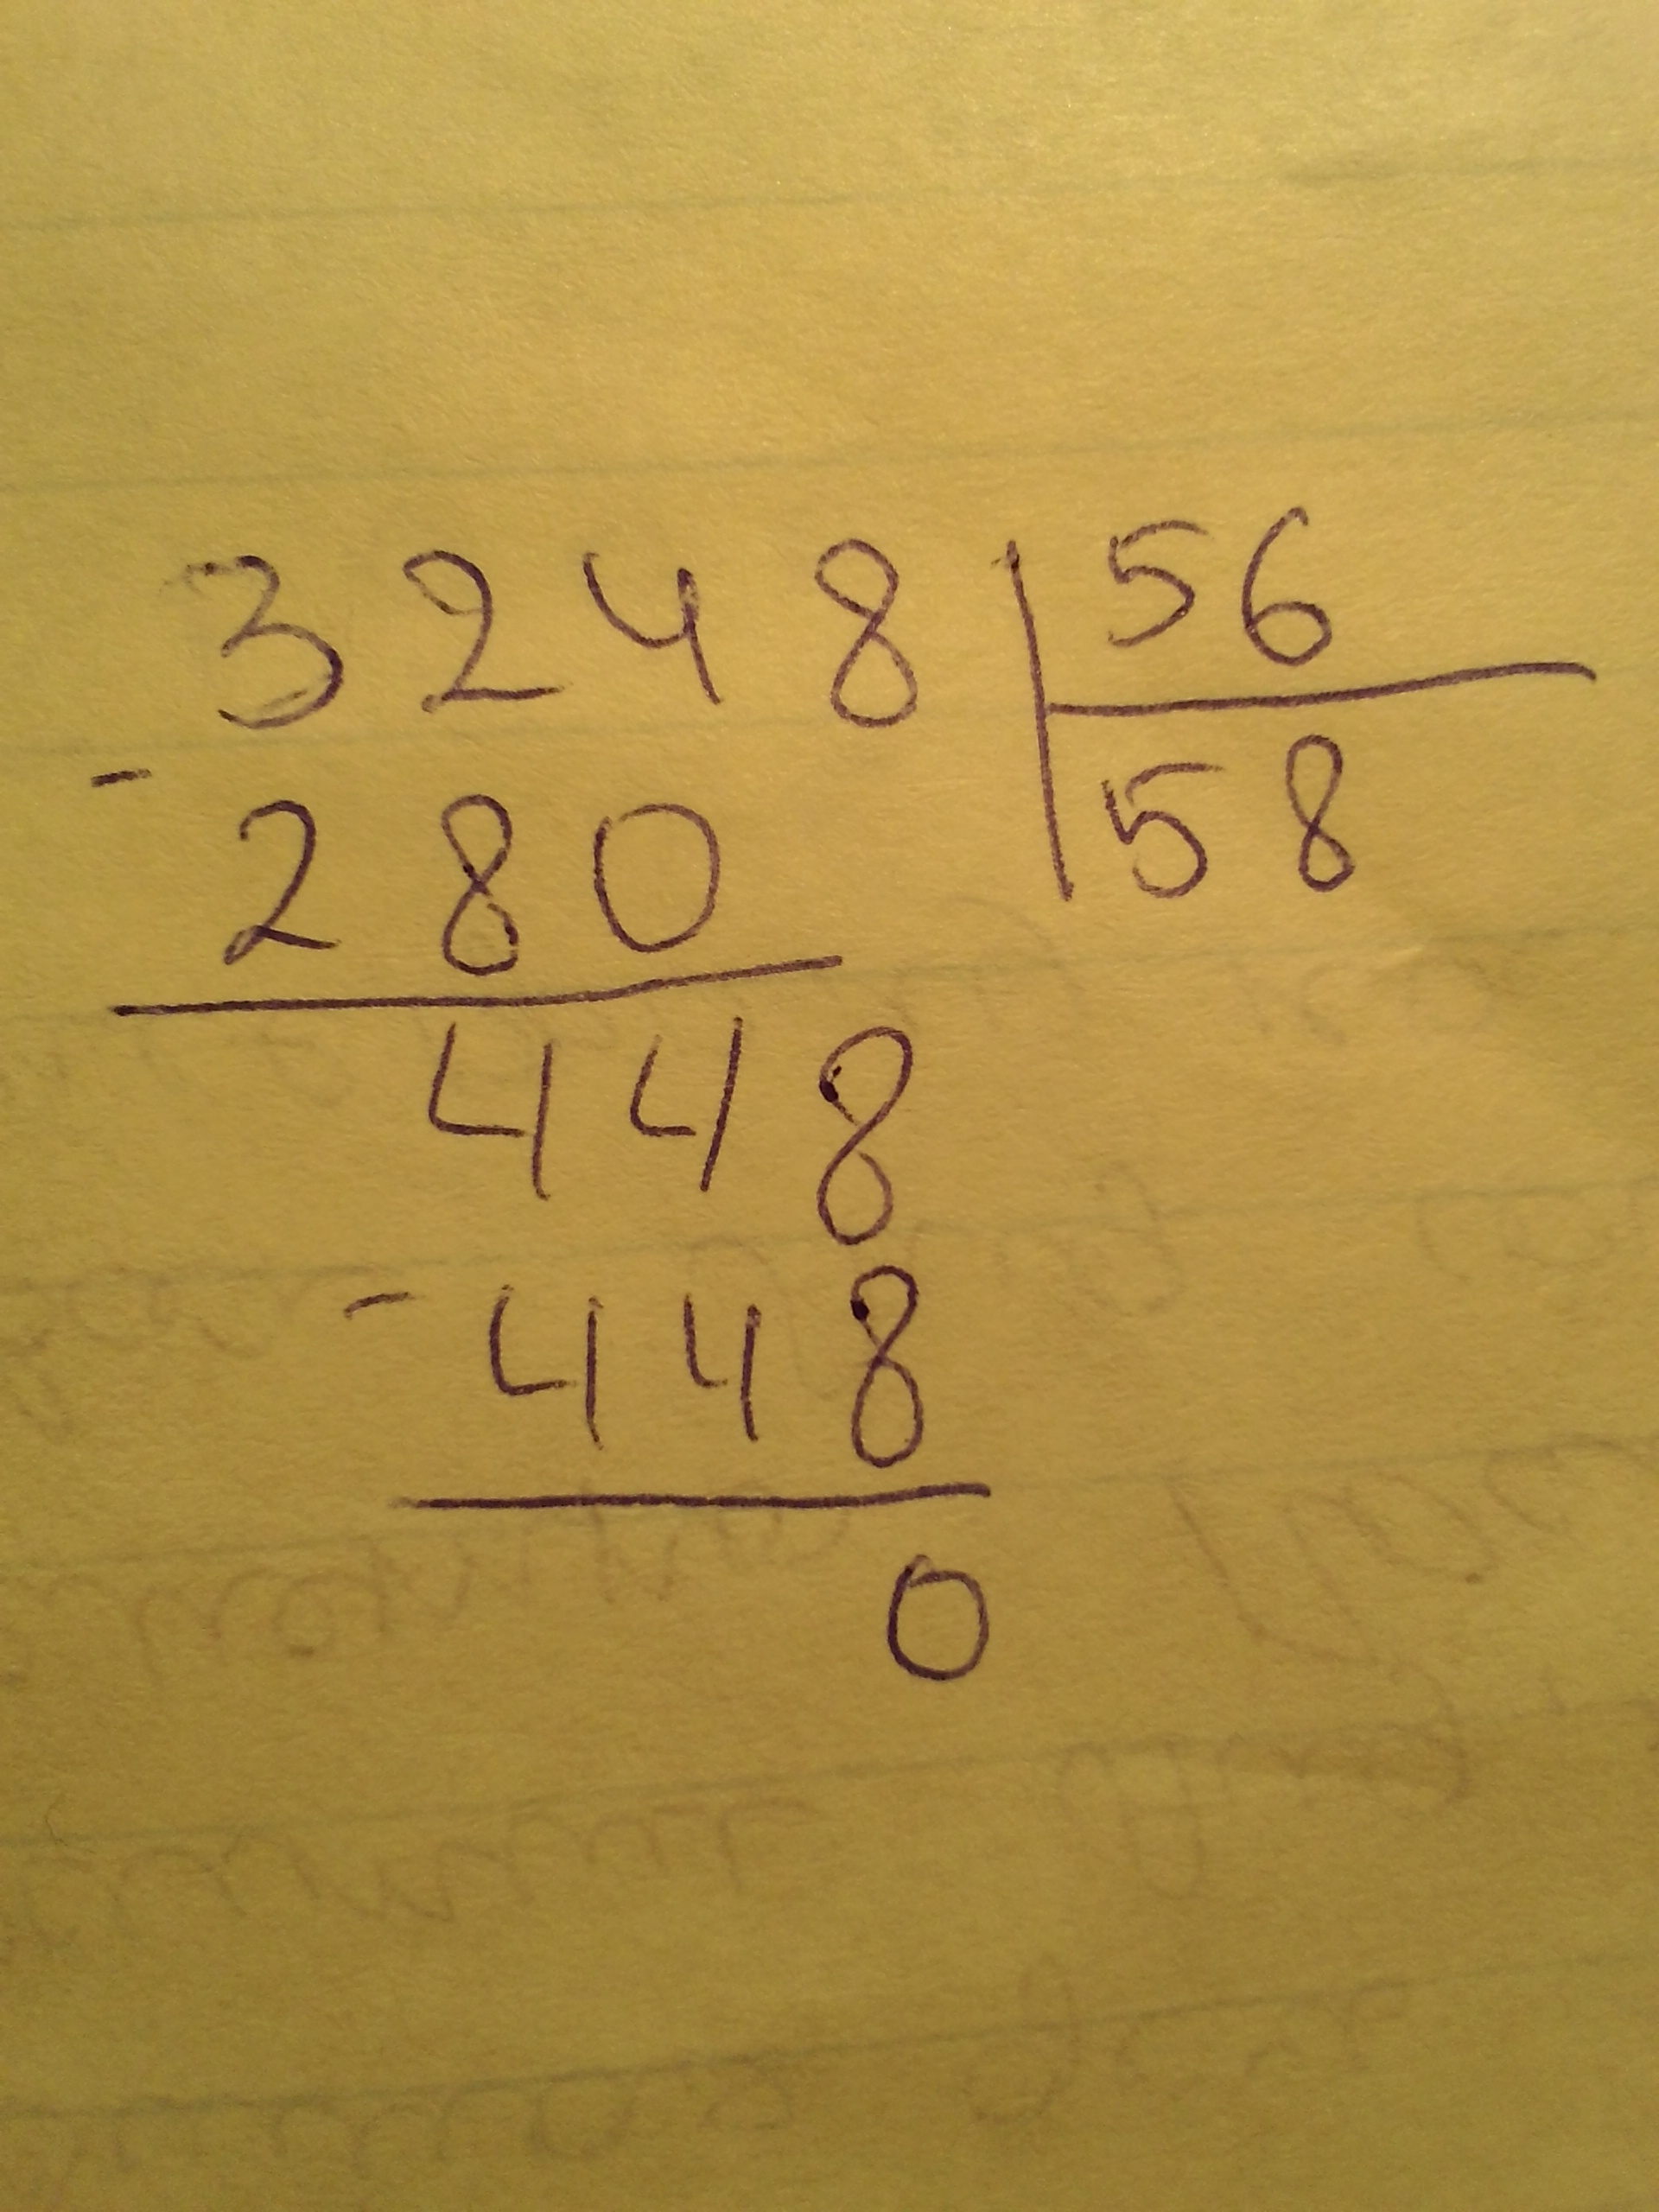 3248 56
- 58
280
448
- 448
0